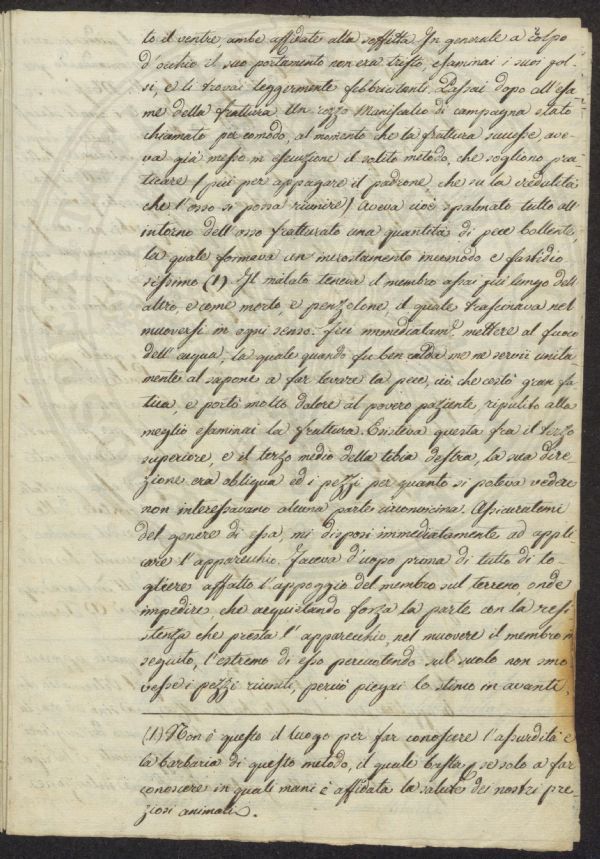 to il ventre, ambe affidate alla soffitta. In generale a colpo
d'occhio il suo portamento non era tristo, esaminai i suoi pol-
si, e li trovai leggermente febbricitanti. Passai dopo all'esa-
me della frattura. Un rozzo Maniscalco di campagna stato
chiamato per comodo, al momento che la frattura successe, ave-
va già messo in esecuzione il solito metodo, che sogliono pra-
ticare (più per appagare il padrone, che su la credulità
che l'osso si possa riunire) Aveva cioè spalmato tutto all'
intorno dell'osso fratturato una quantità di pece bollente,
la quale formava un incrostamento incomodo e fastidio
sissimo (1). Il malato teneva il membro assai più lungo dell'
altro, e come morto, e penzolone, il quale trascinava nel
muoversi in ogni senso. Feci immediatam.e mettere al fuoco
dell'acqua, la quale quando fu ben calda me ne servii unita-
mente al sapone a far levare la pece, ciò che costò gran fa
tica, e portò molto dolore al povero paziente, ripulito alla
meglio esaminai la frattura. Esisteva questa fra il terzo
superiore, e il terzo medio della tibia destra, la sua dire-
zione era obliqua ed i pezzi per quanto si poteva vedere
non interessavano alcuna parte circonvicina. Assicuratomi
del genere di essa, mi disposi immediatamente ad appli
care l'apparecchio. Faceva d'uopo prima di tutto di to-
gliere affatto l'appoggio del membro sul terreno onde
impedire che acquistando forza la parte con la resi
stenza che presta l'apparecchio, nel muovere il membro in
seguito, l'estremo di esso percuotendo sul suolo non smo
vesse i pezzi riuniti, perciò piegai lo stinco in avanti,
(1) Non è questo il luogo per far conoscere l'assurdità e
la barbaria di questo metodo, il quale basta se solo a far
conoscere in quali mani è affidata la salute dei nostri pre-
ziosi animali.